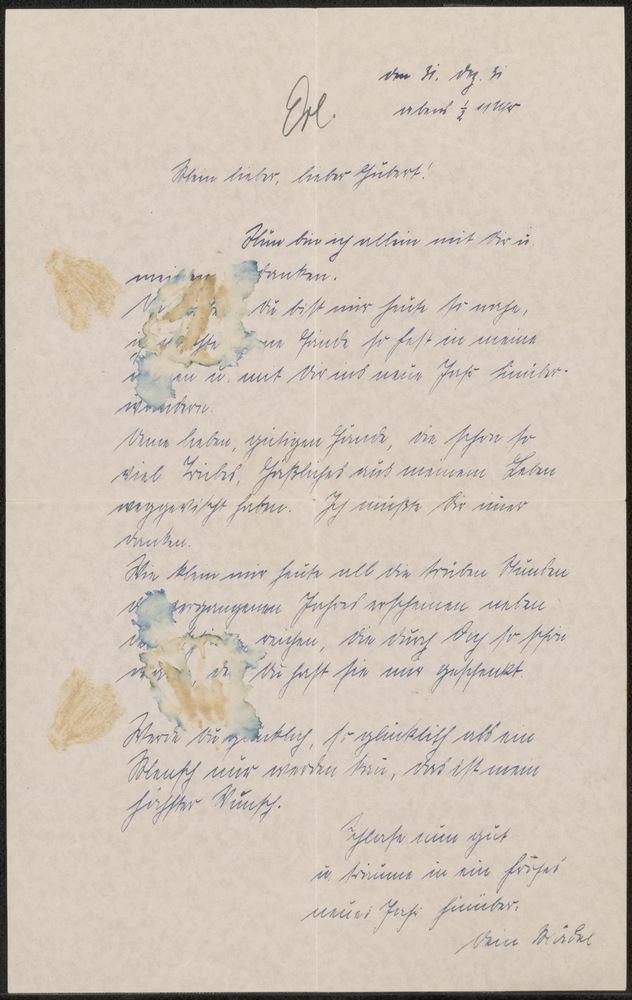 den 31. Dez. 31
abends ½ 11 Uhr
Erl.
Mein lieber, lieber Hubert!
Nun bin ich allein mit Dir u.
meinen danken.
Du bist mir heute so nahe,
ne Hände so fest in meine
en u. mit Dir ins neue Jahr hinüber-
wandern.
Deine lieben, gütigen Hände, die schon so
viel Trübes, Häßliches aus meinem Leben
weggewischt haben. Ich müßte Dir immer
danken.
Wie klein mir heute all die trüben Stunden
d vergangenen Jahres erscheinen neben
reichen, die durch Dich so schön
Du hast sie mir geschenkt.
Werde Du glücklich, so glücklich als ein
Mensch nur werden kan, das ist mein
höchster Wunsch.
Schlafe nun gut
u. träume in ein frohes
neues Jahr hinüber.
Dein Mädel